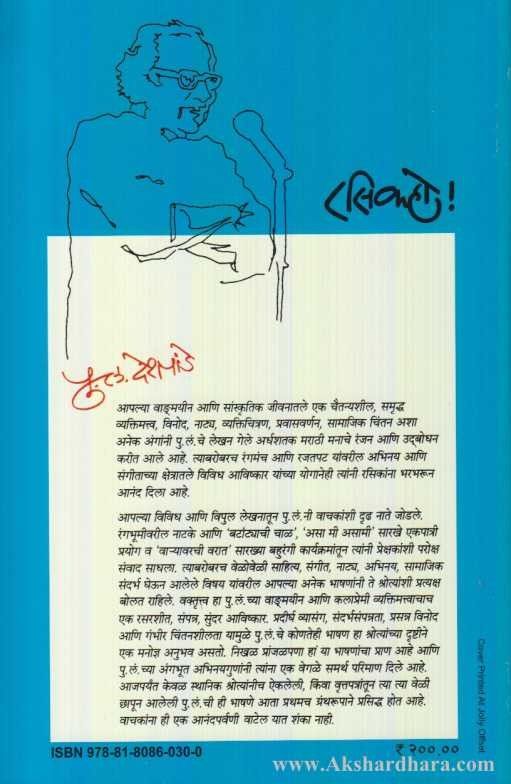 रसिकहो !
पु. ल. देशपांडे
आपल्या वाङ्मयीन आणि सांस्कृतिक जीवनातले एक चैतन्यशील, समृद्ध
व्यक्तिमत्त्व, विनोद, नाट्य, व्यक्तिचित्रण, प्रवासवर्णन, सामाजिक चिंतन अशा
अनेक अंगांनी पु.लं.चे लेखन गेले अर्धशतक मराठी मनाचे रंजन आणि उद्बोधन
करीत आले आहे. त्याबरोबरच रंगमंच आणि रजतपट यांवरील अभिनय आणि
संगीताच्या क्षेत्रातले विविध आविष्कार यांच्या योगानेही त्यांनी रसिकांना भरभरून
आनंद दिला आहे.
आपल्या विविध आणि विपुल लेखनातून पु.लं.नी वाचकांशी दृढ नाते जोडले.
रंगभूमीवरील नाटके आणि 'बटाट्याची चाळ', 'असा मी असामी' सारखे एकपात्री
प्रयोग व 'वाऱ्यावरची वरात' सारख्या बहुरंगी कार्यक्रमांतून त्यांनी प्रेक्षकांशी परोक्ष
संवाद साधला. त्याबरोबरच वेळोवेळी साहित्य, संगीत, नाट्य, अभिनय, सामाजिक
संदर्भ घेऊन आलेले विषय यांवरील आपल्या अनेक भाषणांनी ते श्रोत्यांशी प्रत्यक्ष
बोलत राहिले. वक्तृत्व हा पु.लं.च्या वाङ्मयीन आणि कलाप्रेमी व्यक्तिमत्त्वाचाच
एक रसरशीत, संपन्न, सुंदर आविष्कार. प्रदीर्घ व्यासंग, संदर्भसंपन्नता, प्रसन्न विनोद
आणि गंभीर चिंतनशीलता यामुळे पु.लं.चे कोणतेही भाषण हा श्रोत्यांच्या दृष्टीने
एक मनोज्ञ अनुभव असतो. निखळ प्रांजळपणा हा या भाषणांचा प्राण आहे आणि
पु.लं.च्या अंगभूत अभिनयगुणांनी त्यांना एक वेगळे समर्थ परिमाण दिले आहे.
आजपर्यंत केवळ स्थानिक श्रोत्यांनीच ऐकलेली, किंवा वृत्तपत्रांतून त्या त्या वेळी
छापून आलेली पु.लं.ची ही भाषणे आता प्रथमच ग्रंथरूपाने प्रसिद्ध होत आहे.
वाचकांना ही एक आनंदपर्वणी वाटेल यात शंका नाही.
Cover Printed At Jolly Offset
ISBN 978-81-8086-030-0
₹ २००.००
www.Akshardhara.com